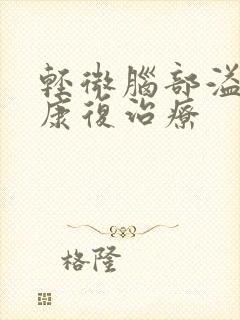 輕微腦部溢
康復治療
格隆